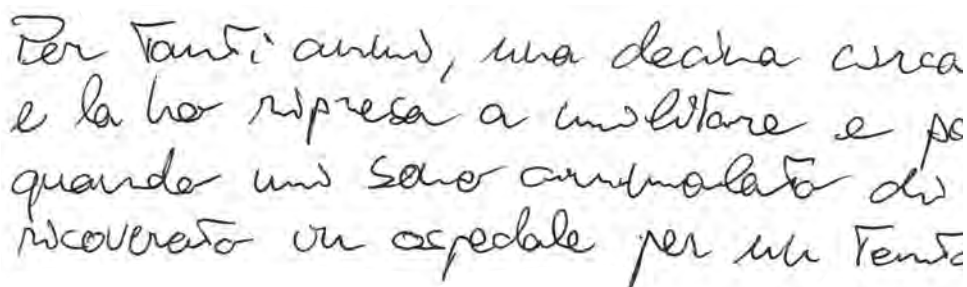 Per tanti anni, una decina circa
e la ho ripresa a militare e po
quando mi sono ammalato di
ricoverato in ospedale per un tenta